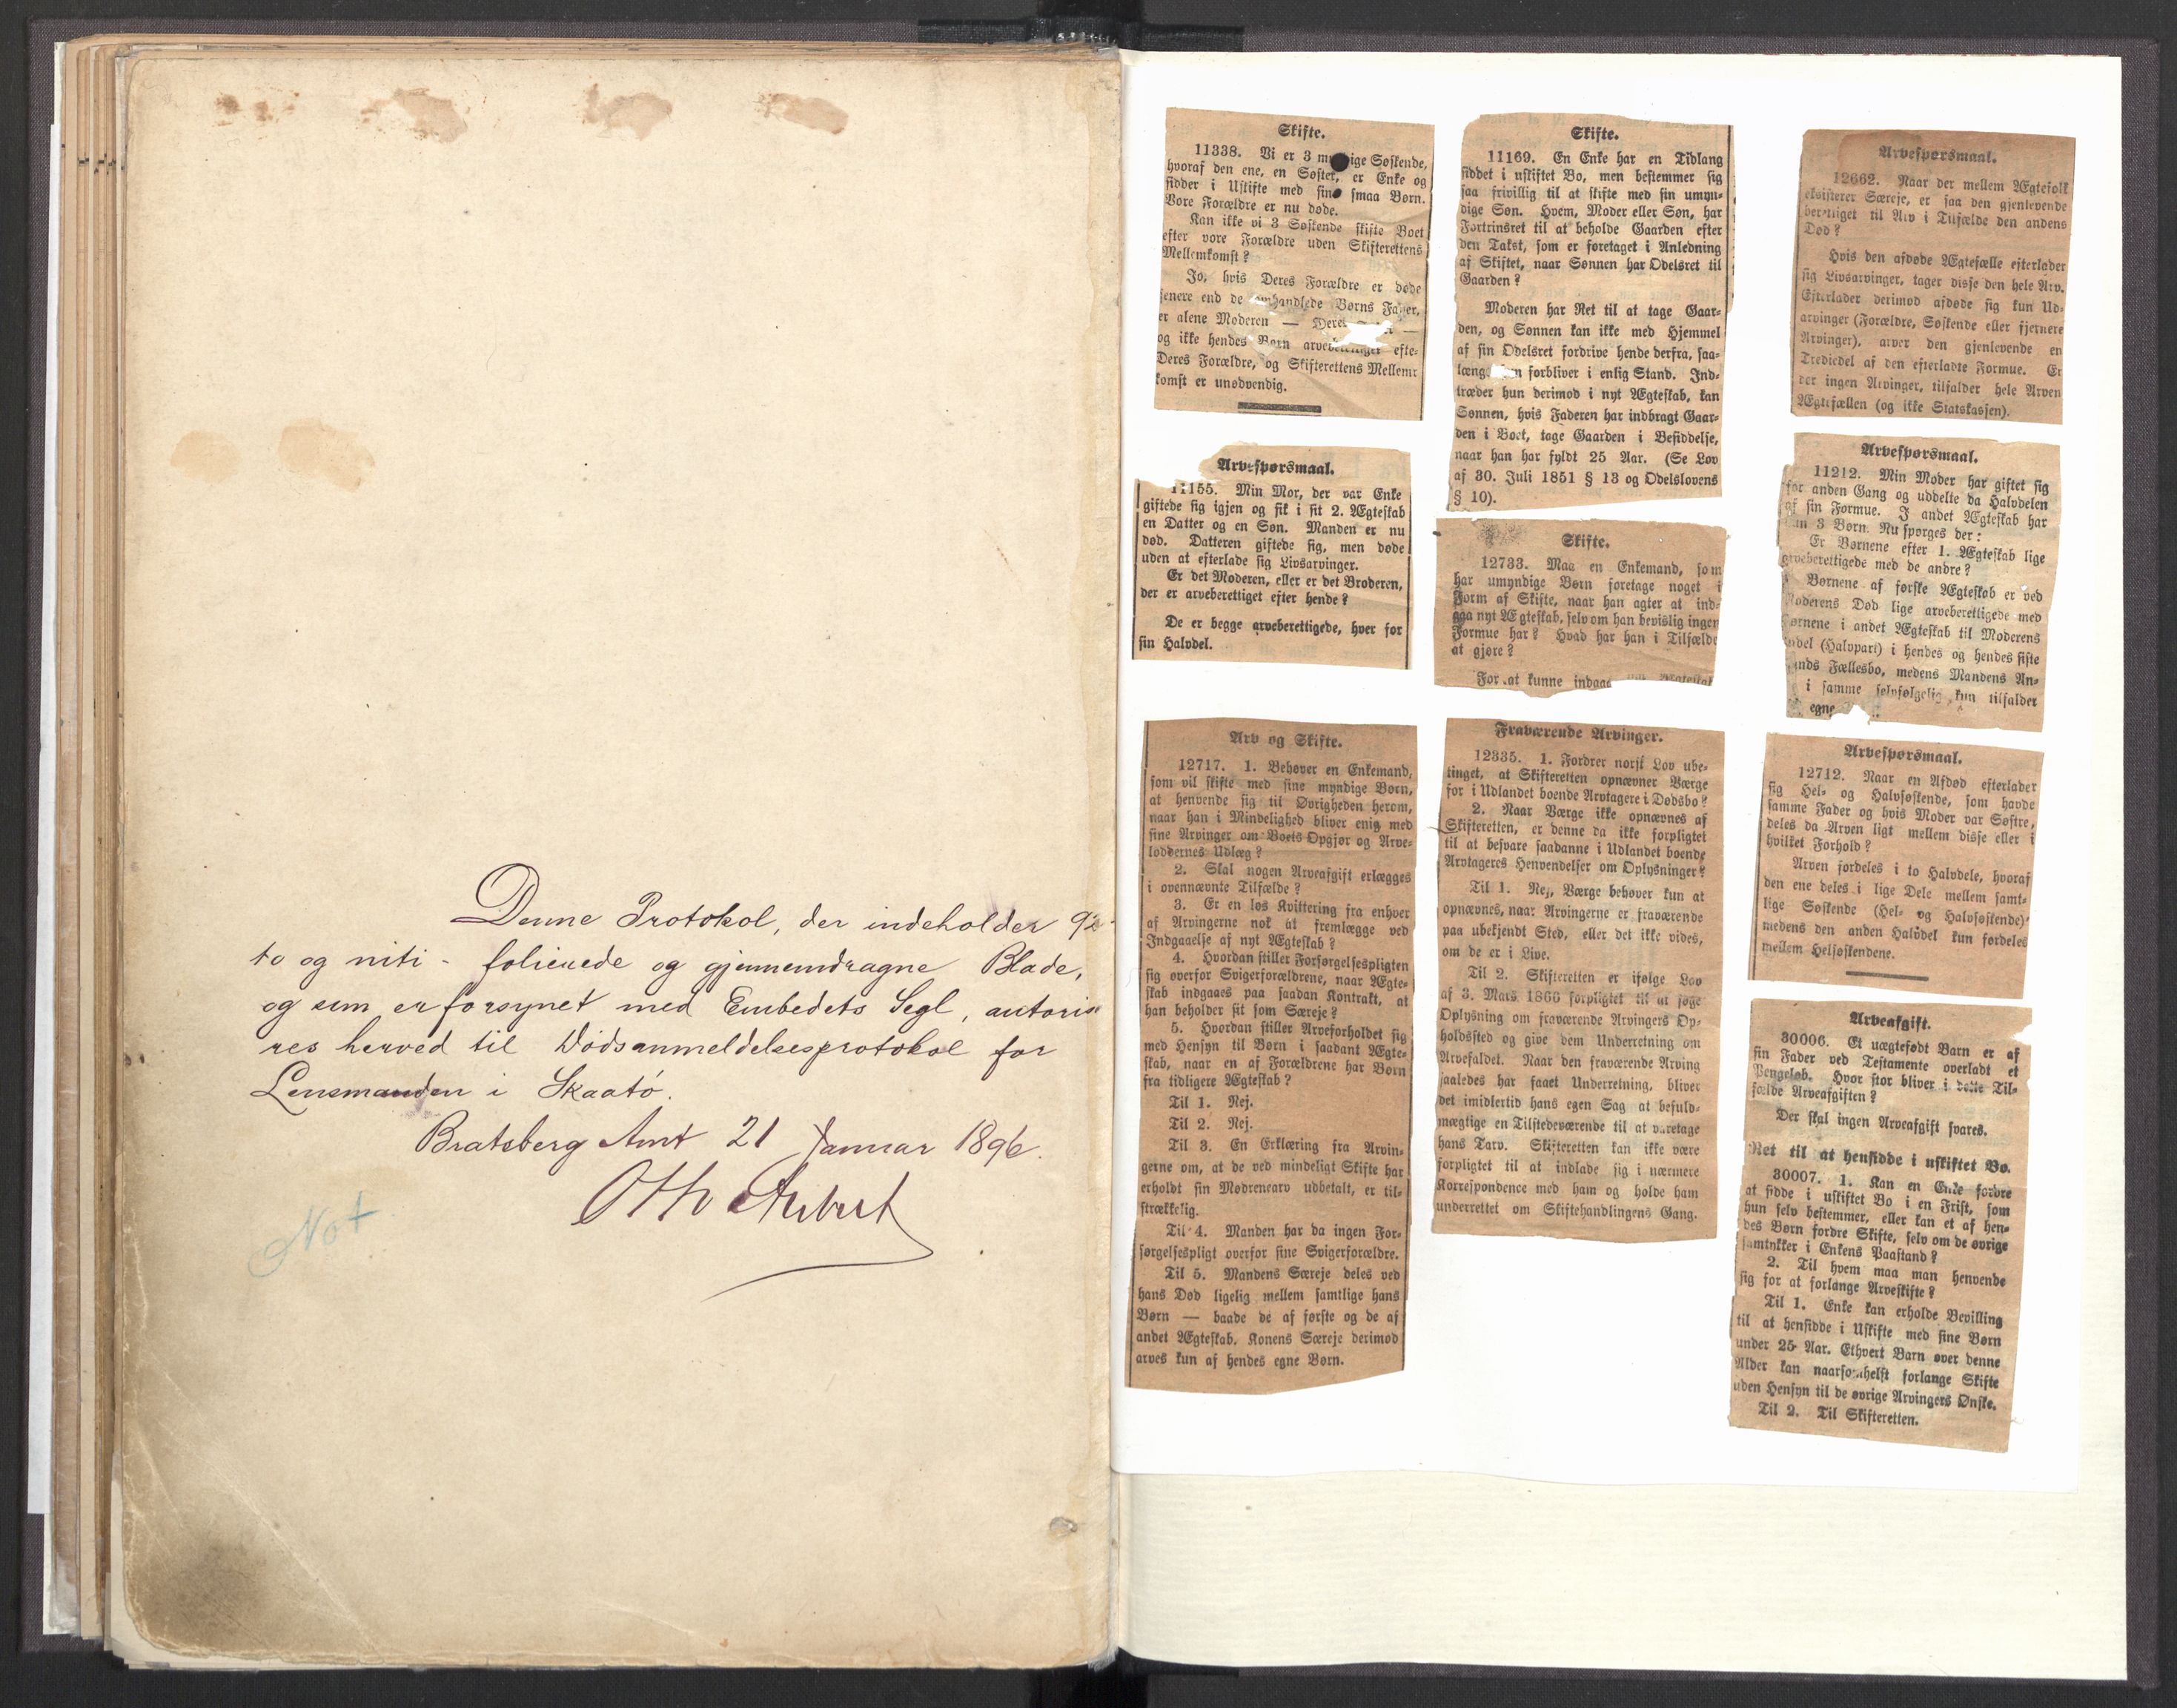 Denne Protokol, der indeholder 92
to og niti - folierede og gjennemdragne Blade,
og som er forsynet med Embedets Segl, autorise
res herved til Dödsanmeldelsesprotokol for
Lensmanden i Skaatö.
Bratsberg Amt 21 Januar 1896.
Otto Aubert
Not
Skifte.
11338. Vi er 3 ige Søskende,
hvoraf den ene, en Søster, er Enke og
sidder i Uskifte med sine smaa Børn.
Vore Forældre er nu døde.
Kan ikke vi 3 Søskende skifte Boet
efter vore Forældre uden Skifterettens
Mellemkomst?
Jo, hvis Deres Forældre er døde
senere end de omhandlede Børns Fader,
er alene Moderen —  —
og ikke hendes Børn arveberettiget efte-
Deres Forældre, og Skifterettens Mellemr
komst er unødvendig.
Arvespørsmaal.
11155. Min Mor, der var Enke
giftede sig igjen og fik i sit 2. Ægteskab
en Datter og en Søn. Manden er nu
død. Datteren giftede sig, men døde
uden at efterlade sig Livsarvinger.
Er det Moderen, eller er det Broderen,
der er arveberettiget efter hende?
De er begge arveberettigede, hver for
sin Halvdel.
Arv og Skifte.
12717. 1. Behøver en Enkemand,
som vil skifte med sine myndige Børn,
at henvende sig til Øvrigheden herom,
naar han i Mindelighed bliver enig med
sine Arvinger om Boets Opgjør og Arve-
loddernes Udlæg?
2. Skal nogen Arveafgift erlægges
i ovennævnte Tilfælde?
3. Er en løs Kvittering fra enhver
af Arvingerne nok at fremlægge ved
Indgaaelse af nyt Ægteskab?
4. Hvordan stiller Forsørgelsespligten
sig overfor Svigerforældrene, naar Ægte-
skab indgaaes paa saadan Kontrakt, at
han beholder sit som Særeje?
5. Hvordan stiller Arveforholdet sig
med Hensyn til Børn i saadant Ægte-
skab, naar en af Forældrene har Børn
fra tidligere Ægteskab?
Til 1. Nej.
Til 2. Nej.
Til 3. En Erklæring fra Arvin-
gerne om, at de ved mindeligt Skifte har
erholdt sin Mødrenearv udbetalt, er til-
strækkelig.
Til 4. Manden har da ingen For-
sørgelsespligt overfor sine Svigerforældre.
Til 5. Mandens Særeje deles ved
hans Død ligelig mellem samtlige hans
Børn — baade de af første og de af
andet Ægteskab. Konens Særeje derimod
arves kun af hendes egne Børn.
Skifte.
11169. En Enke har en Tidlang
siddet i uskiftet Bo, men bestemmer sig
saa frivillig til at skifte med sin umyn-
dige Søn. Hvem, Moder eller Søn, har
Fortrinsret til at beholde Gaarden efter
den Takst, som er foretaget i Anledning
af Skiftet, naar Sønnen har Odelsret til
Gaarden?
Moderen har Ret til at tage Gaar-
den, og Sønnen kan ikke med Hjemmel
af sin Odelsret fordrive hende derfra, saa-
længe hun forbliver i enlig Stand. Ind-
træder hun derimod i nyt Ægteskab, kan
Sønnen, hvis Faderen har indbragt Gaar-
den i Boet, tage Gaarden i Besiddelse,
naar han har fyldt 25 Aar. (Se Lov
af 30. Juli 1851 § 13 og Odelslovens
§ 10).
Skifte.
12733. Maa en Enkemand, som
har umyndige Børn foretage noget i
Form af Skifte, naar han agter at ind-
gaa nyt Ægteskab, selv om han bevislig ingen
Formue har? Hvad har han i Tilfælde
at gjøre?
For at kunne indgaa
Fraværende Arvinger.
12335. 1. Fordrer norsk Lov ube-
tinget, at Skifteretten opnævner Værge
for i Udlandet boende Arvtagere i Dødsbo?
2. Naar Værge ikke opnævnes af
Skifteretten, er denne da ikke forpligtet
til at besvare saadanne i Udlandet boende
Arvtageres Henvendelser om Oplysninger?
Til 1. Nej, Værge behøver kun at
opnævnes, naar Arvingerne er fraværende
paa ubekjendt Sted, eller det ikke vides,
om de er i Live.
Til 2. Skifteretten er ifølge Lov
af 3. Mars 1866 forpligtet til at søge
Oplysning om fraværende Arvingers Op-
holdssted og give dem Underretning om
Arvefaldet. Naar den fraværende Arving
saaledes har faaet Underretning, bliver
det imidlertid hans egen Sag at befuld-
mægtige en Tilstedeværende til at varetage
hans Tarv. Skifteretten kan ikke være
forpligtet til at indlade sig i nærmere
Korrespondence med ham og holde ham
underrettet om Skiftehandlingens Gang.
Arvespørsmaal.
12662. Naar der mellem Ægtefolk
eksisterer Særeje, er saa den gjenlevende
berettiget til Arv i Tilfælde den andens
Død?
Hvis den afdøde Ægtefælle efterlader
sig Livsarvinger, tager disse den hele Arv.
Efterlader derimod afdøde sig kun Ud-
arvinger (Forældre, Søskende eller fjernere
Arvinger), arver den gjenlevende en
Trediedel af den efterladte Formue. Er
der ingen Arvinger, tilfalder hele Arven
Ægtefællen (og ikke Statskassen).
Arvespørsmaal.
11212. Min Moder har giftet sig
for anden Gang og uddelte da Halvdelen
af sin Formue. I andet Ægteskab har
hun 3 Børn. Nu spørges der:
Er Børnene efter 1. Ægteskab lige
arveberettigede med de andre?
Børnene af første Ægteskab er ved
Moderens Død lige arveberettigede med
Børnene i andet Ægteskab til Moderens
Andel (Halvpart) i hendes og hendes siste
Mands Fællesbo, medens Mandens An-
i samme selvfølgelig kun tilfalder
egne
Arvespørsmaal.
12712. Naar en Afdød efterlader
sig Hel- og Halvsøskende, som havde
samme Fader og hvis Moder var Søstre,
deles da Arven ligt mellem disse eller i
hvilket Forhold?
Arven fordeles i to Halvdele, hvoraf
den ene deles i lige Dele mellem samt-
lige Søskende (Hel- og Halvsøskende)
medens den anden Halvdel kun fordeles
mellem Helsøskendene.
Arveafgift.
30006. Et uægtefødt Barn er af
sin Fader ved Testamente overladt et
Pengeløb. Hvor stor bliver i dette Til-
fælde Arveafgiften?
Der skal ingen Arveafgift svares.
Ret til at hensidde i uskiftet Bo.
30007. 1. Kan en Enke fordre
at sidde i uskiftet Bo i en Frist, som
hun selv bestemmer, eller kan et af hen-
des Børn fordre Skifte, selv om de øvrige
samtykker i Enkens Paastand?
2. Til hvem maa man henvende
sig for at forlange Arveskifte?
Til 1. Enke kan erholde Bevilling
til at hensidde i Uskifte med sine Børn
under 25 Aar. Ethvert Barn over denne
Alder kan naarsomhelst forlange Skifte
uden Hensyn til de øvrige Arvingers Ønske.
Til 2. Til Skifteretten.